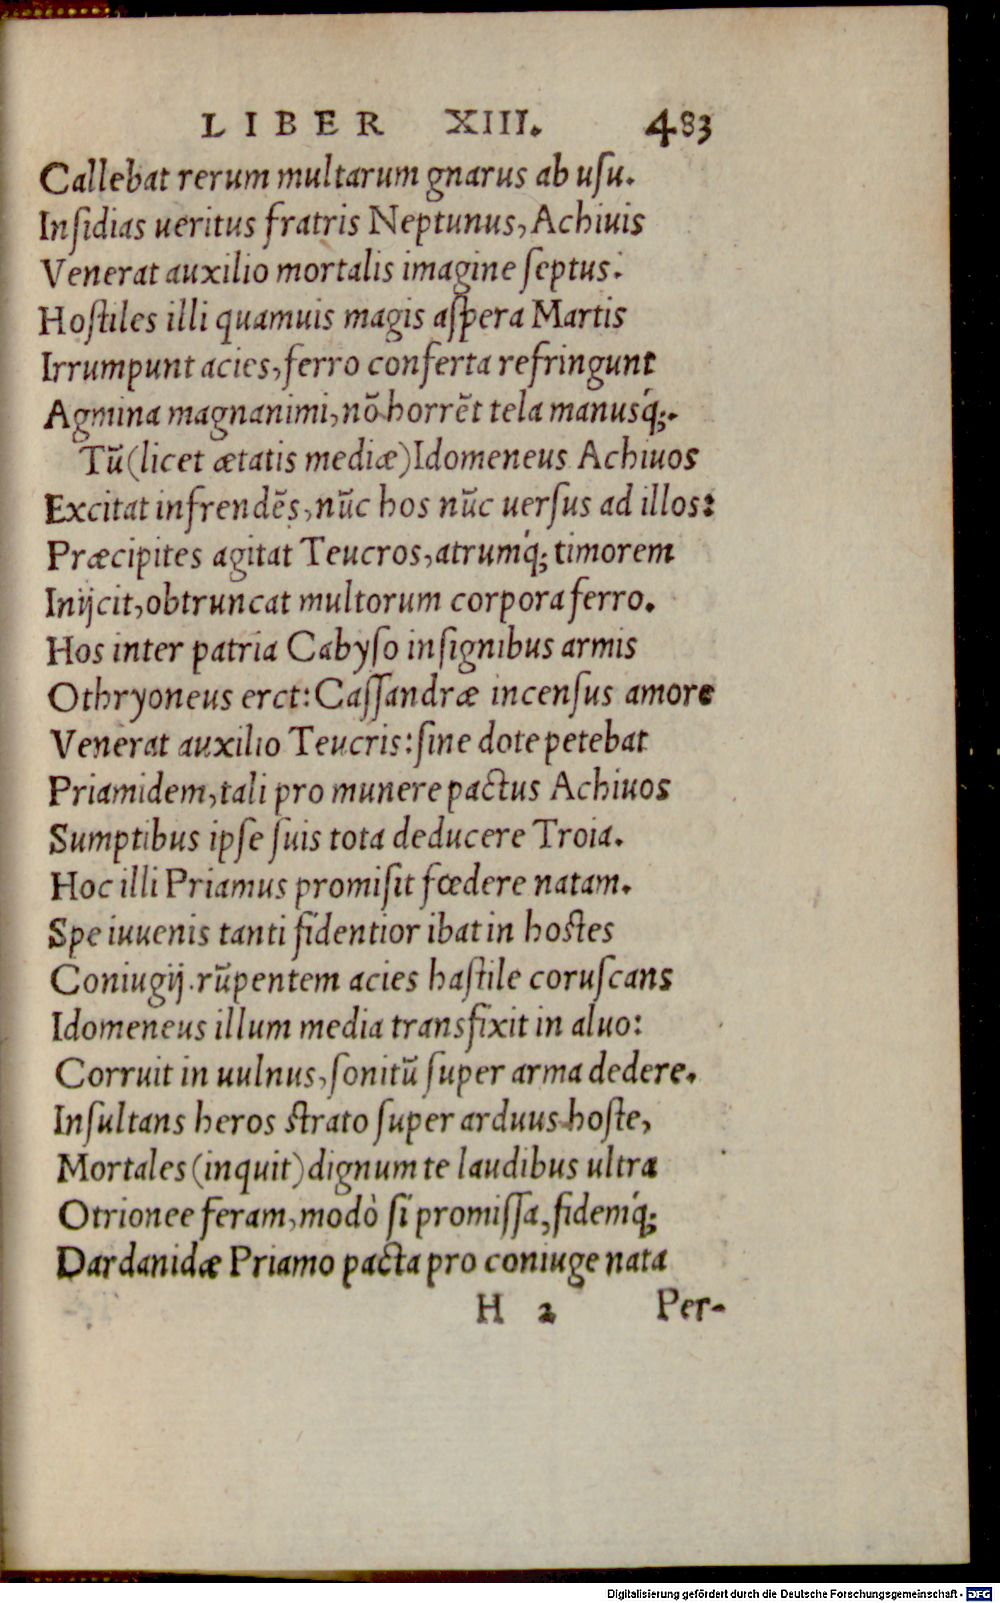 LIBER XIII. 483
Callebat rerum multarum gnarus ab uſu.
Inſidias ueritus fratris Neptunus, Achiuis
Venerat auxilio mortalis imagine ſeptus.
Hoſtiles illi quamuis magis aſpera Martis
Irrumpunt acies, ferro conferta refringunt
Agmina magnanimi, nō horrēt tela manusq́;.
Tū (licet ætatis mediæ) Idomeneus Achiuos
Excitat infrendēs, nūc hos nūc uerſus ad illos:
Præcipites agitat Teucros, atrumq́; timorem
Inijcit, obtruncat multorum corpora ferro.
Hos inter patria Cabyſo inſignibus armis
Othryoneus erct: Caſſandræ incenſus amore
Venerat auxilio Teucris: ſine dote petebat
Priamidem, tali pro munere pactus Achiuos
Sumptibus ipſe ſuis tota deducere Troia.
Hoc illi Priamus promiſit fœdere natam.
Spe iuuenis tanti fidentior ibat in hoſtes
Coniugij. rūpentem acies haſtile coruſcans
Idomeneus illum media transfixit in aluo:
Corruit in uulnus, ſonitū ſuper arma dedere.
Inſultans heros ſtrato ſuper arduus hoſte,
Mortales (inquit) dignum te laudibus ultra
Otrionee feram, modò ſi promiſſa, fidemq́;
Dardanidæ Priamo pacta pro coniuge nata
H 2 Per-
Digitalisierung gefördert durch die Deutsche Forschungsgemeinschaft - DFG